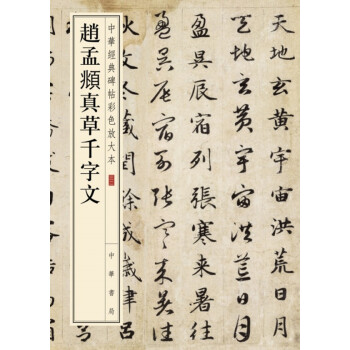 天地玄黃宇宙洪荒日月
天地玄黃宇宙洪荒日月
盈昃辰宿列張寒来暑往
盈昃辰宿列張寒来暑往
冬藏閏餘成歲
中華經典碑帖彩色放大本
趙孟頫真草千字文
中華書局